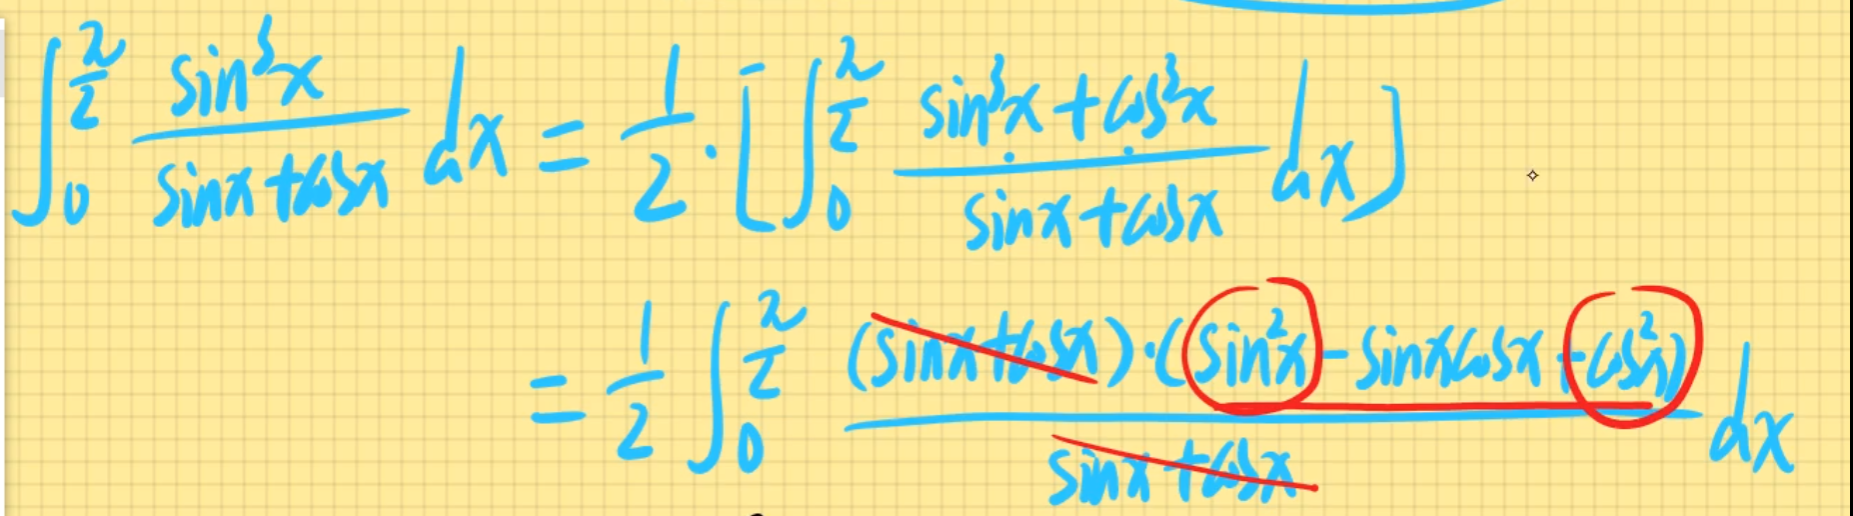 ∫₀^(π/2) sin³x/(sinx+cosx) dx = 1/2 · [∫₀^(π/2) (sin³x+cos³x)/(sinx+cosx) dx]
= 1/2 ∫₀^(π/2) (sinx+cosx)·(sin²x-sinxcosx+cos²x)/(sinx+cosx) dx